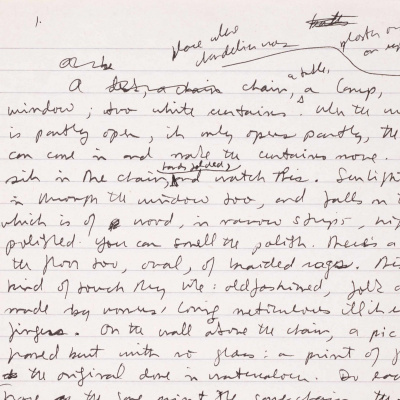 1.
place also
dandelions
plaster on
on
A chair, a table, a lamp,
window; two white curtains. When the w
is partly open, it only opens partly, the
can come in and make the curtains move.
hands folded,
sit in the chair, and watch this. Sunlight
in through the window too, and falls on t
which is of wood, in narrow strips, hig
polished. You can smell the polish. There's a
the floor too, oval, of braided rags. This
kind of touch they like: oldfashioned, folk a
made by women,
fingers. On the wall above the chair, a pic
framed but with no glass: a print of f
the original done in watercolour. Do eac
have the same print, the same chair, the